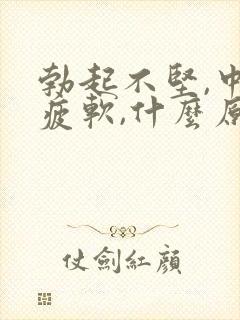 勃起不堅,中
疲軟,什麼原
仗劍紅顏